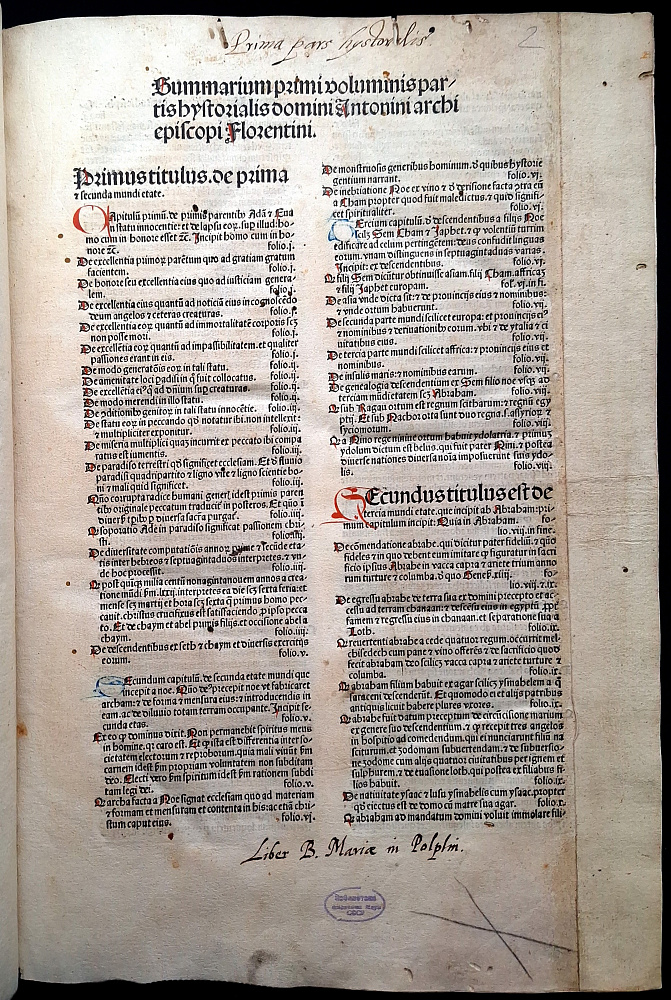 Prima pars hystorialis
2
Summarium primi voluminis par⸗
tis hystorialis domini Antonini archi
episcopi Florentini.
Primus titulus. de prima
⁊ secunda mundi etate.
Capitulū primū. de primis parentibꝰ Adā ⁊ Eua
in statu innocentie: et de lapsu eoꝝ. sup illud: ho⸗
mo cum in honore esset ⁊c̄. Incipit homo cum in ho⸗
nore ⁊c̄. folio.j.
De excellentia primoꝝ parētum quo ad gratiam gratum
facientem. folio.j.
De honore seu excellentia eius quo ad iusticiam genera⸗
lem. folio.j.
De excellentia eius quantū ad noticiā eius in cognoscēdo
deum angelos ⁊ ceteras creaturas. folio.j.
De excellentia eoꝝ quantū ad immortalitatē corporis scꝫ
non posse mori. folio.j.
De excellētia eoꝝ quantū ad impassibilitatem. et qualiter
passiones erant in eis. folio.j.
De modo generatōis eoꝝ in tali statu. folio.ij.
De amenitate loci padisi in q̄ fuit collocatus. folio.ij.
De excellētia eiꝰ q̄ ad dñium sup creaturas. folio.ij.
De modo merendi in illo statu. folio.ij.
De ꝯditionibꝰ genitoꝝ in tali statu innocētie. folio.ij.
De statu eoꝝ in peccando qd̓ notatur ibi. non intellexit:
⁊ multipliciter exponitur. folio.ij.
De miseria multiplici quaꝫ incurrit ex peccato ibi compa
ratus est iumentis. folio.iij.
De paradiso terrestri qd̓ significet ecclesiam. Et d̓ fluuio
paradisi quadripartito ⁊ ligno vite ⁊ ligno scientie bo⸗
ni ⁊ mali quid significet. folio.iij.
Quō corrupta radice humani generis idest primis paren
tibꝰ originale peccatum traducit̄ in posteros. Et quo ī
diuersꝭ tꝑibꝰ ꝑ diuersa sacr̄a purgat̄. folio.iij.
Qsoporatio Ade in paradiso significat passionem chri⸗
sti. folio.iij.
De diuersitate computatiōis annoꝝ prime ⁊ secūde eta⸗
tis inter hebreos ⁊ septuagintaduos interpretes. ⁊ vn⸗
de hoc processit. folio.iiij.
Q post quīqꝫ milia centū nonagintanouem annos a crea⸗
tione mūdi ꝓm̄.lxxij.interpretes ea die scꝫ sexta feria: et
mense scꝫ martij et hora scꝫ sexta q̄ primus homo pec⸗
cauit. christus crucifixus est satisfaciendo ꝑ ipso pecca
to. Et de chaym et abel primis filijs. et occisione abel a
chaym. folio.iiij.
De descendentibus ex seth ⁊ chaym et diuersis exercitijs
eorum. folio.v.
Secundum capitulū. de secunda etate mundi que
incipit a noe. Quō de⁹ precepit noe vt fabricaret
archam: ⁊ de forma ⁊ mensura eius: ⁊ introducendis in
eam. ac de diluuio totam terram occupante. Incipit se⸗
cunda etas. folio.v.
Ex eo q̄ dominus dicit. Non permanebit spiritus meus
in homine. qꝛ caro est. Et q̄ ista est differentia inter so⸗
cietatem electorum ⁊ reproborum. quia mali viuūt ꝓm̄
carnem idest ꝓm̄ propriam voluntatem non subditam
deo. Electi vero ꝓm̄ spiritum idest ꝓm̄ rationem subdi
tam legi dei. folio.v.
Q archa facta a Noe signat ecclesiam quo ad materiam
⁊ formam et mensuram et contenta in his: ac etiā chri⸗
stum caput eius. folio.vj.
De monstruosis generibus hominum. d̓ quibus hystorie
gentium narrant. folio.vj.
De inebriatione Noe ex vino ⁊ d̓ derisione facta cōtra eū
a Cham propter quod fuit maledictus. ⁊ quid signifi⸗
cet spiritualiter. folio.vj.
Tercium capitulū. d̓ descendentibus a filijs Noe
scilꝫ Sem Cham ⁊ Japhet. ⁊ q̄ volentiū turrim
edificare ad celum pertingētem: deus confudit linguas
eorum. vnam distinguens in septuagintaduas varias.
Incipit: ex descendentibus. folio.vj.
Q filij Sem dicūtur obtinuisse asiam. filij Cham. affricaꝫ
⁊ filij Japhet europam. fol.vj.in fi.
De asia vnde dicta sit: ⁊ de prouincijs eius ⁊ nominibus:
vnde ortum habuerunt. folio.vij.
De secunda parte mundi scilicet europa: et prouincijs ei⁹
⁊ nominibus ⁊ deriuationibꝰ eorum. vbi ⁊ de ytalia ⁊ ci
uitatibus eius. folio.vij.
De tercia parte mundi scilicet affrica: ⁊ prouincijs eius et
nominibus. folio.vij.
De insulis maris: ⁊ nominibus earum. folio.vij.
De genealogia descendentium ex Sem filio noe vsqꝫ ad
terciam mūdi etatem scꝫ Abraham. folio.vij.
Q sub Ragau ortum est regnum scitharum: ⁊ regnū egy
ptij. Et sub Nachor orta sunt duo regna.s.assyrioꝝ ⁊
sycioniorum. folio.vij.
Q a Nino rege niniue ortum habuit ydolatria. ⁊ primuꝫ
ydolum dictum est belus. qui fuit pater Nini. ⁊ postea
diuerse nationes diuersa noīa imposuerunt suis ydo⸗
lis. folio.viij.
Secundus titulus est de
tercia mundi etate. que incipit ab Abraham: pri⸗
mum capitulum incipit: Quia in Abraham. fo⸗
lio.viij.in fine.
De cōmendatione abrahe. qui dicitur pater fidelīū. ⁊ quō
fideles ⁊ in quo debent eum imitare q̄ figuratur in sacri
ficio ipsius Abrahe in vacca capra ⁊ ariete trium anno
rum turture ⁊ columba. d̓ quo Gene.xiiij. fo⸗
lio.viij.⁊.ix.
De egressu abrahe de terra sua ex domini precepto et ac⸗
cessu ad terram chanaan: ⁊ descēsu eius in egyptū ꝓpt̄
famem ⁊ regressu eius in chanaan. et separatione sua a
Loth. folio.ix.
Q reuertenti abrahe a cede quatuor regum. occurrit mel⸗
chisedech cum pane ⁊ vino offerēs ⁊ de sacrificio quod
fecit abraham deo scilicꝫ vacca capra ⁊ ariete turture ⁊
columba. folio.ix.
Q abraham filium habuit ex agar scilicꝫ ysmahelem a q̄
saraceni descenderūt. Et quomodo ei et alijs patribus
antiquis licuit habere plures vxores. folio.ix.
Q abrahe fuit datum preceptum de circūcisione marium
ex genere suo descendentium. ⁊ q̄ recepit tres angelos
in hospitio ad comedendum. qui ei nunciarunt filiū na
sciturum. et zodomam subuertendam. ⁊ de subuersio⸗
ne zodome cum alijs quatuor ciuitatibus per ignem et
sulphurem. ⁊ de euasione loth. qui postea ex filiabus fi⸗
lios habuit. folio.ix.
De natiuitate ysaac ⁊ lusu ysmahelis cum ysaac. propter
qd̓ eiectus est de domo cū matre sua agar. folio.x.
Q abraham ad mandatum domini voluit immolare fili⸗
Liber B. Mariæ in Polplin.
Библиотека
Академии Наук
СССР